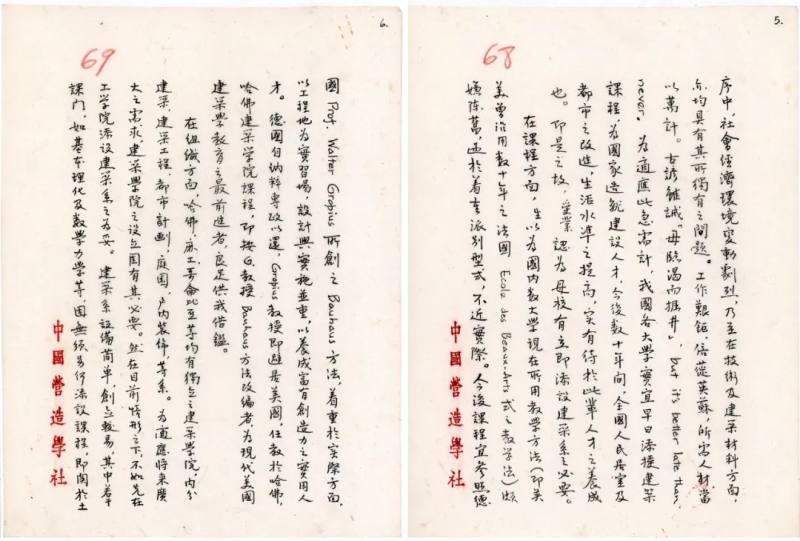 5.
68
序中,社會經濟環境變動劇烈,乃至在技術及建築材料方面,
亦均具有其所獨有之問題。工作艱鉅,倍蓰英蘇,所需人材當
以萬計。古諺雖誡「毋臨渴而掘井」, but it's better late than
never。為適應此急需計,我國各大學實宜早日添授建築
課程,為國家造就建設人才,今後數十年間,全國人民居室及
都市之改進,生活水準之提高,實有待於此輩人才之養成
也。即是之故,受業認為母校有立即添設建築系之必要。
在課程方面,生以為國內數大學現在所用教學方法(即英
美曾沿用數十年之法國 Ecole des Beaux-Arts 式之教學法)頗
嫌陳舊,過於着重派別型式,不近實際。今後課程宜參照德
中國營造學社
6.
69
國 Prof. Walter Gropius 所創之 Bauhaus 方法,着重於實際方面,
以工程地為實習場,設計與實施並重,以養成富有創造力之實用人
才。德國自納粹專政以還,Gropius教授即避居美國,任教於哈佛,
哈佛建築學院課程,即按G.教授 Bauhaus 方法改編者,為現代美國
建築學教育之最前進者,良足供我借鑑。
在組織方面,哈佛,麻工,哥倫比亞等均有獨立之建築學院,內分
建築,建築工程,都市計劃,庭園,戶內裝飾,等系。為適應將來廣
大之需求,建築學院之設立固有其必要。然在目前情形之下,不如先在
工學院添設建築系之為妥。建築系設備簡單,創立較易,其中若干
課門,如基本理化及數學力學等,因無須另行添設課程,即關於土
中國營造學社